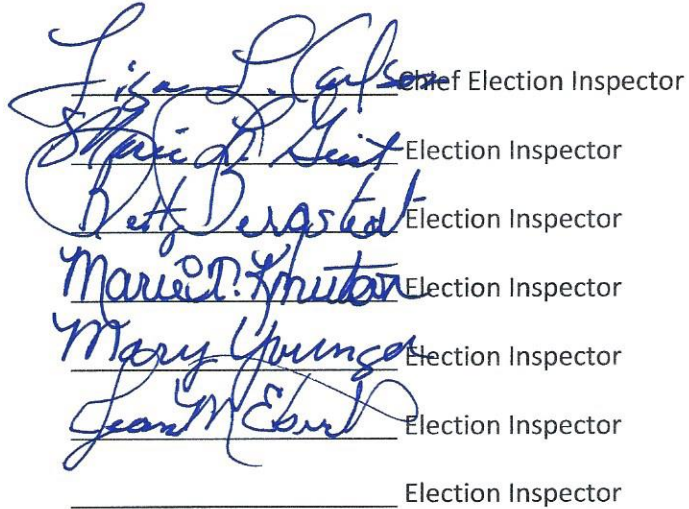 Lisa L. Carlson Chief Election Inspector
Marie L. Election Inspector
Betty Bergstedt Election Inspector
Marie T. Knutson Election Inspector
Mary Younger Election Inspector
Jean M Ebert Election Inspector
Election Inspector